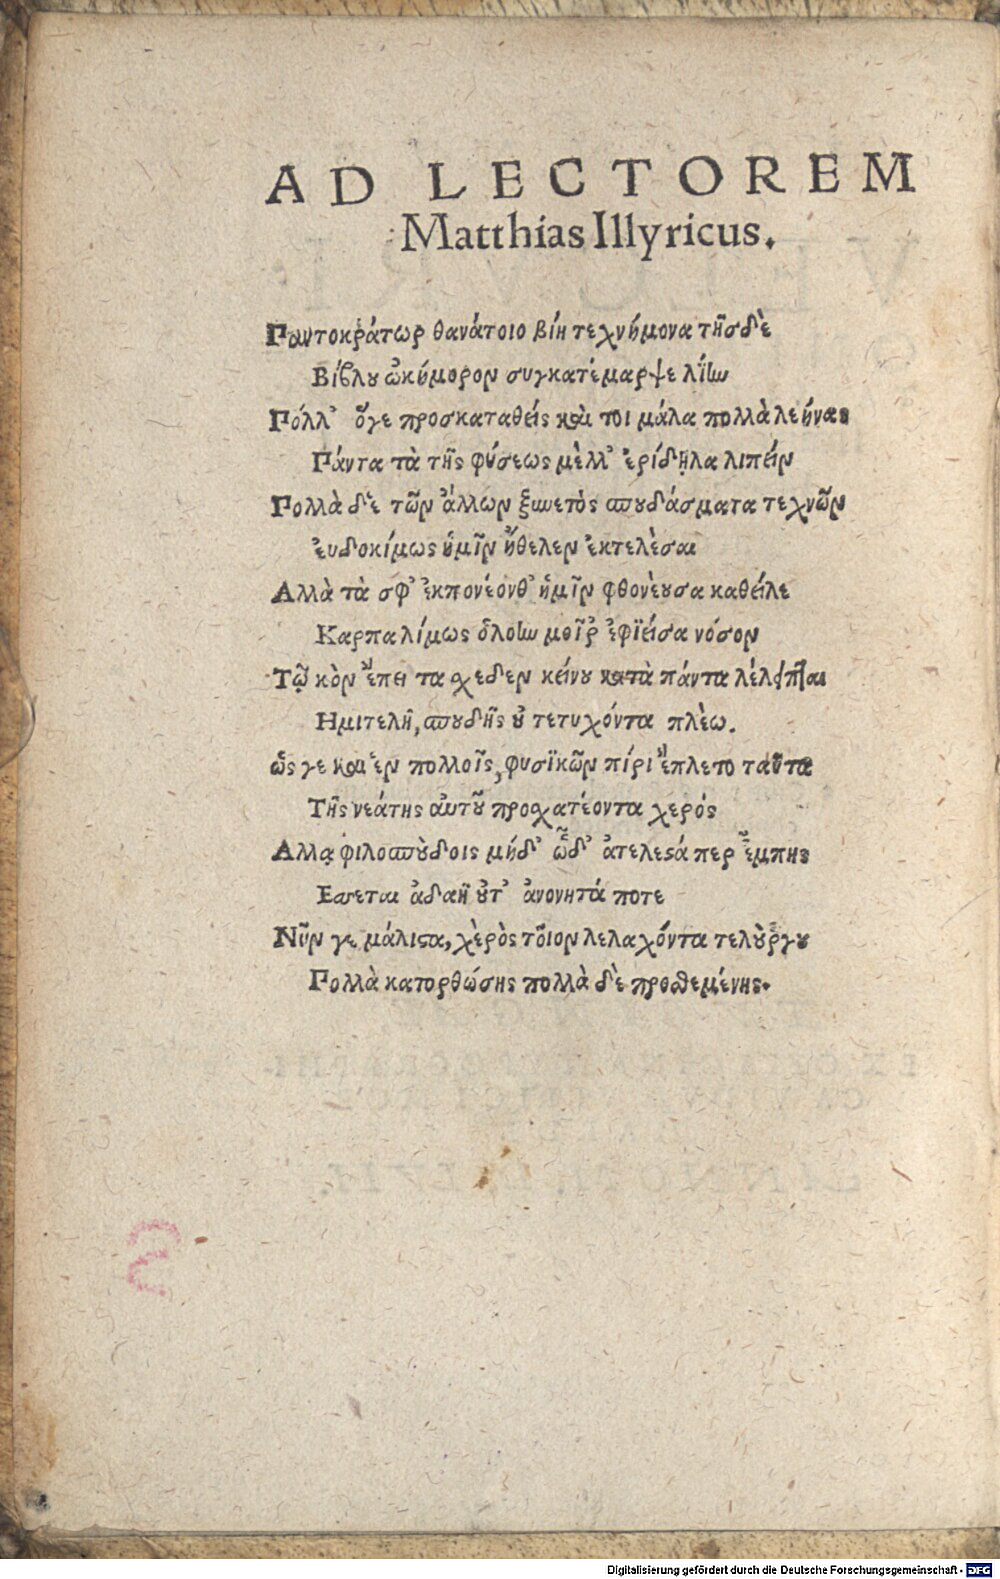 AD LECTOREM
Matthias Illyricus.
Παντοκράτωρ θανάτοιο βίη τεχνήμονα τῆσδὲ
Βίβλου ὠκήμορον συγκατέμαρψε λίην
Πόλλ' ὅγε προσκαταθεὶς καὶ τοι μάλα πολλὰ λεήνας
Πάντα τὰ τῆς φύσεως μὲλλ' ἐρίδηλα λιπεῖν
Πολλὰ δὲ τῶν ἄλλων ξυνετὸς σπουδάσματα τεχνῶν
ἐυδοκίμως ἡμῖν ἤθελεν ἐκτελὲσαι
Αλλὰ τὰ σφ' ἐκπονέονθ' ἡμῖν φθονὲουσα καθεῖλε
Καρπαλίμως ὀλοὴν μοῖρ' ἐφϊεῖσα νόσον
Τῷ κὸν ἔπει τα χεδεν κείνου κατὰ πάντα
Ημιτελῆ, σπουδῆς οὐ τετυχόντα πλὲω.
ὥς γε καὶ ἐν πολλοῖς, φυσϊκῶν πίρι ἔπλετο ταῦτα
Τῆς νεάτης αὐτοῦ προχατέοντα χερός
Αλλα φιλοσπούδοις μήδ' ὧδ' ἀτελεστά περ ἔμπης
Εσσεται ἀδαῆ οὔτ' ἀνονητά ποτε
Νῦν γε μάλιστα, χὲρὸς τοῖον λελαχόντα τελουργοῦ
Πολλὰ κατορθώσης πολλὰ δὲ προσθεμένης.
Digitalisierung gefördert durch die Deutsche Forschungsgemeinschaft - DFG